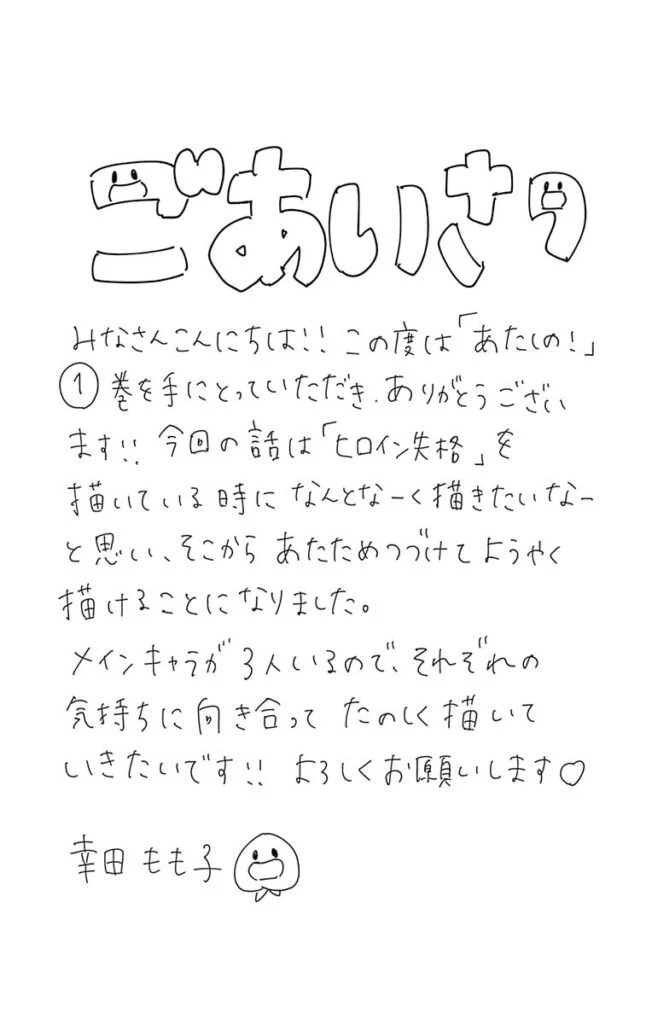 ごあいさつ
みなさんこんにちは!! この度は「あたしの!」
①巻を手にとっていただき、ありがとうござい
ます!! 今回の話は「ヒロイン失格」を
描いている時に なんとなーく描きたいなー
と思い、そこから あたためつづけて ようやく
描けることになりました。
メインキャラが 3人いるので、それぞれの
気持ちに向き合って たのしく描いて
いきたいです!! よろしくお願いします♡
幸田もも子